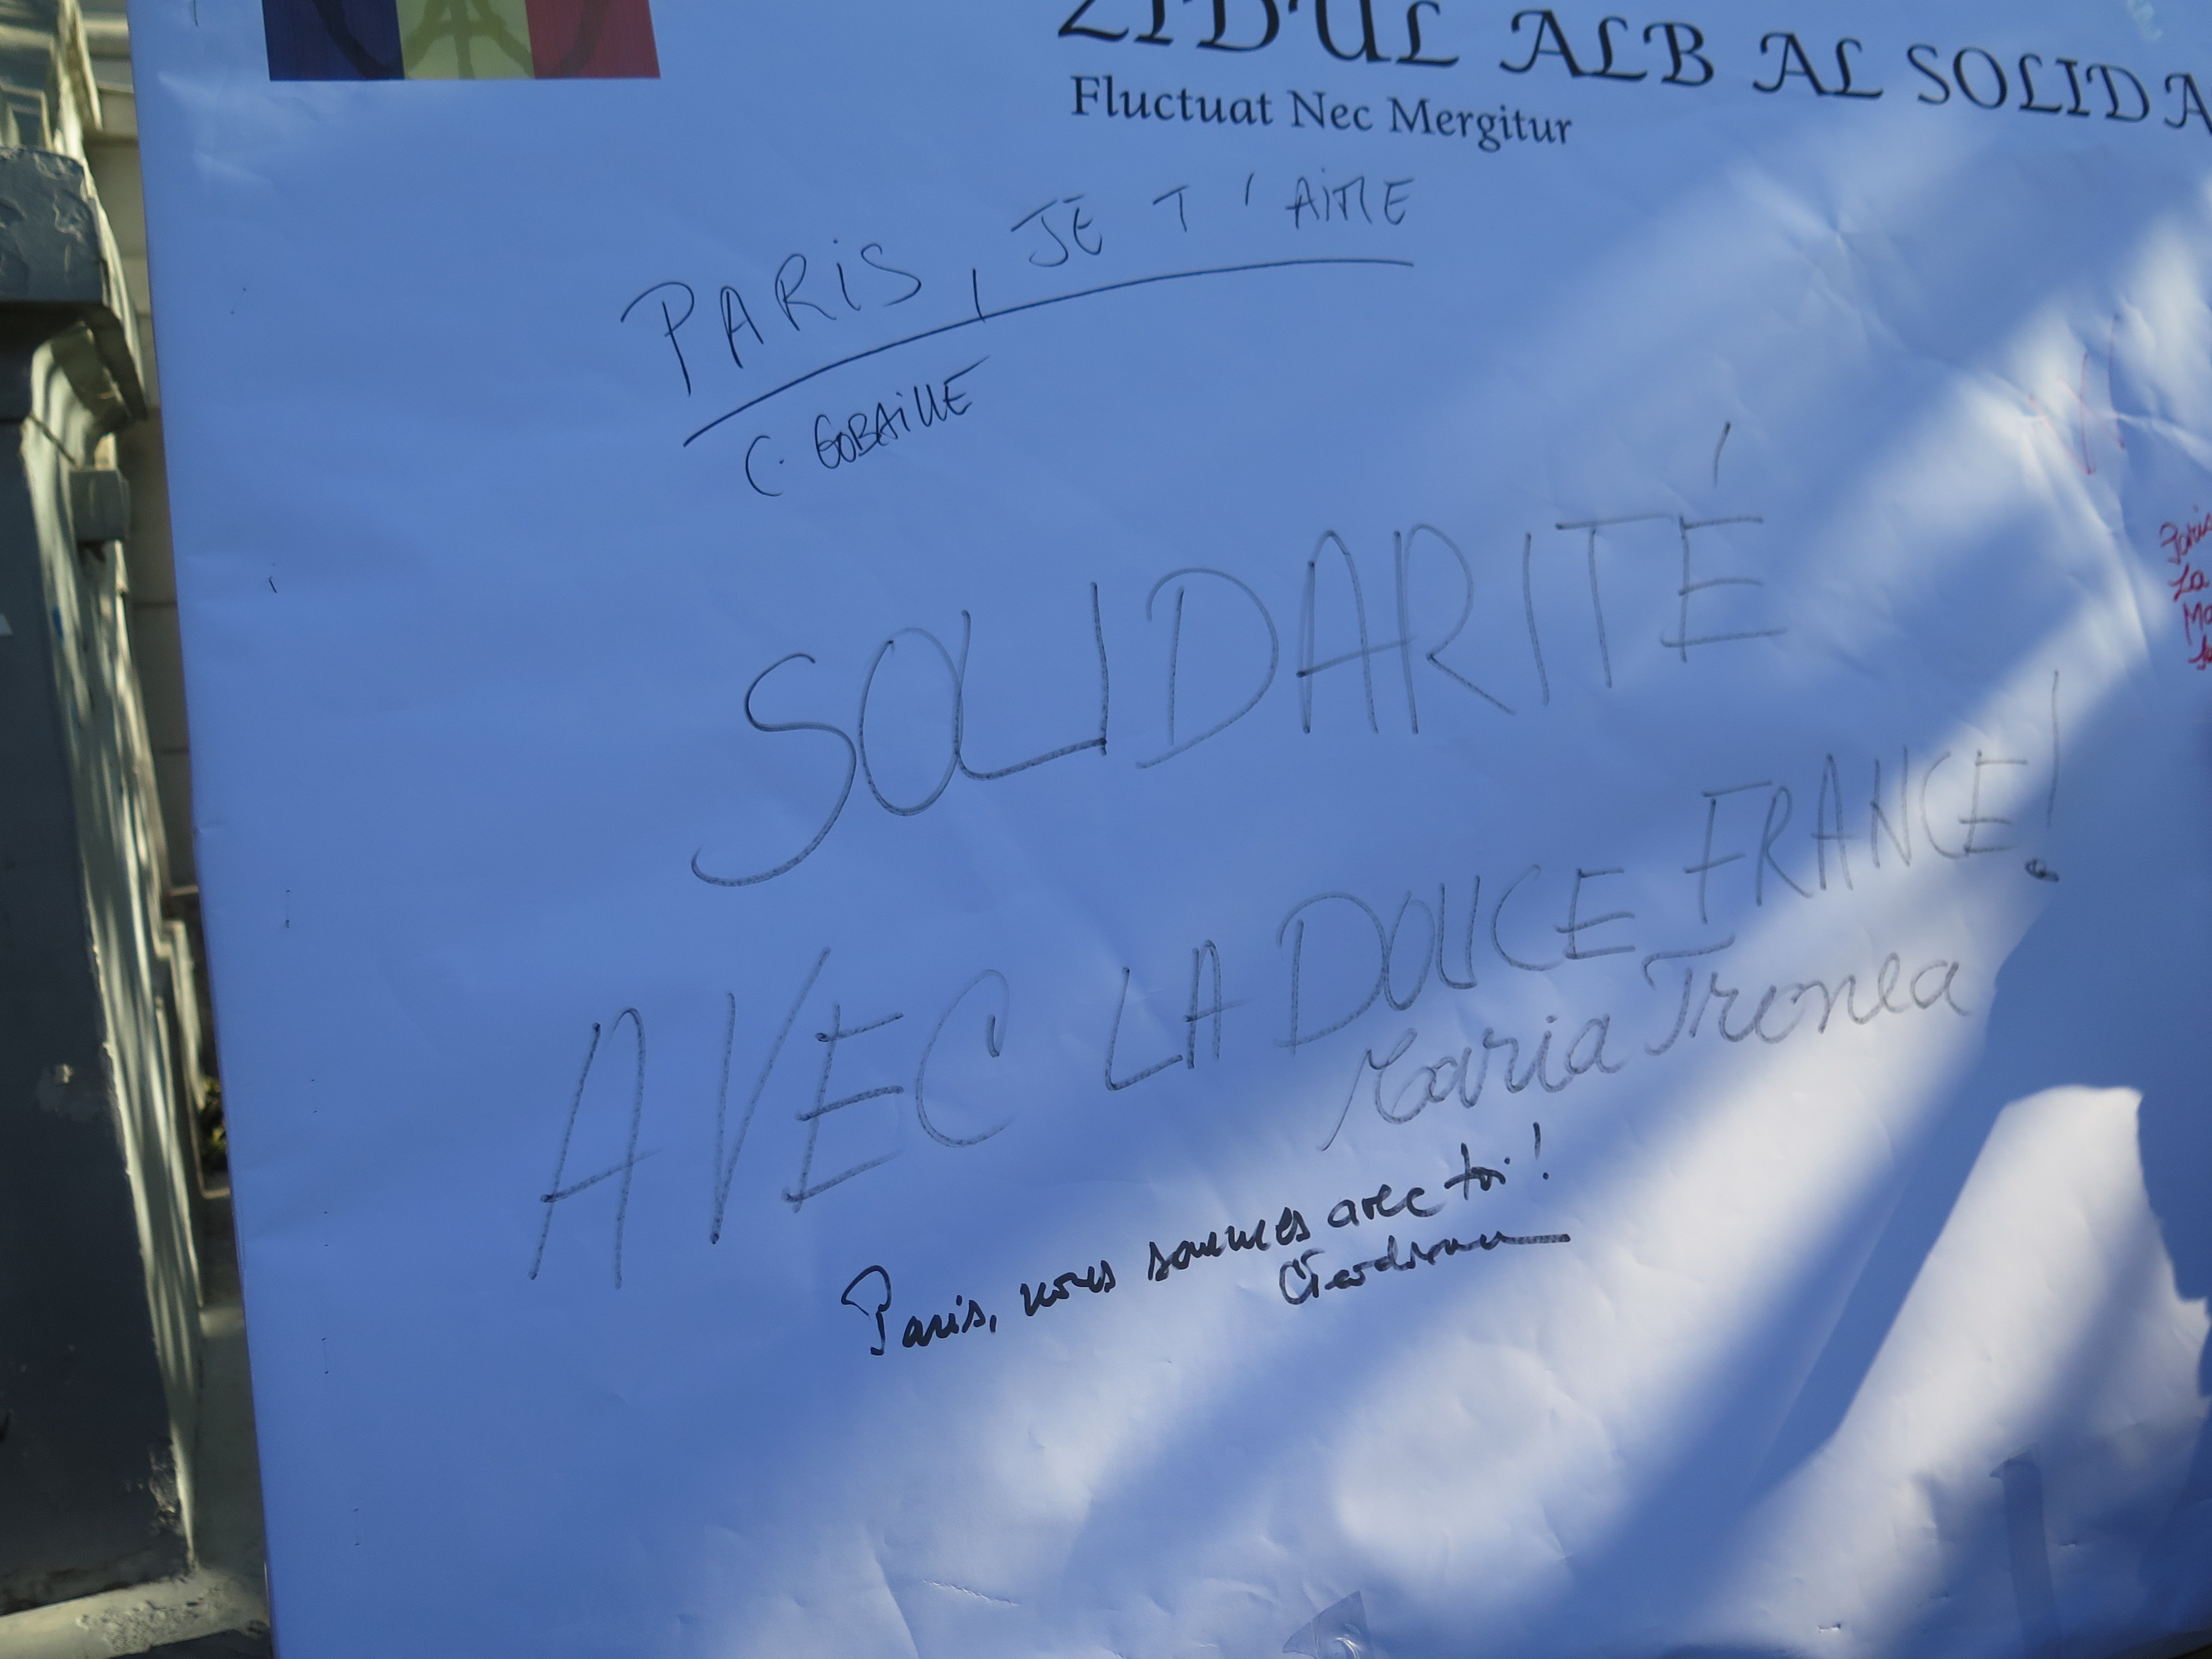 ZIDUL ALB AL SOLIDA
Fluctuat Nec Mergitur
PARIS, JE T'AIME
C. GOBAILLE
SOLIDARITÉ
AVEC LA DOUCE FRANCE!
Maria Tronea
Paris, nous sommes avec toi!
La